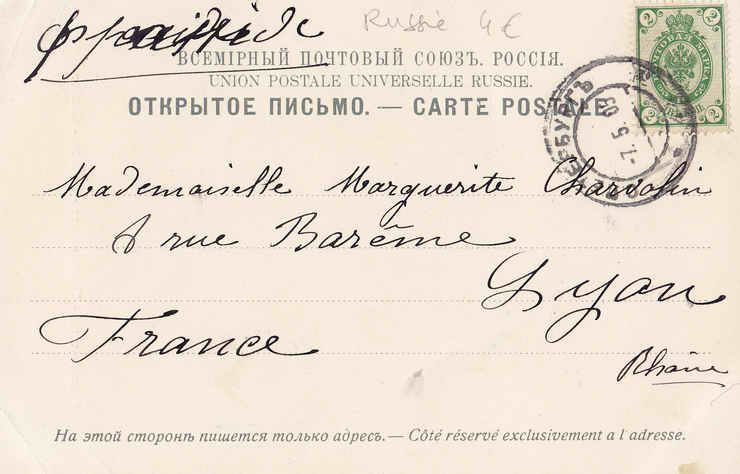 Russie 4€
ВСЕМІРНЫЙ ПОЧТОВЫЙ СОЮЗЪ. РОССІЯ.
UNION POSTALE UNIVERSELLE RUSSIE.
ОТКРЫТОЕ ПИСЬМО. — CARTE POSTALE
2 2
2 2
Mademoiselle Marguerite Charvolin
8 rue Barême
Lyon
France
Rhône
На этой сторонѣ пишется только адресъ. — Côté réservé exclusivement a l'adresse.